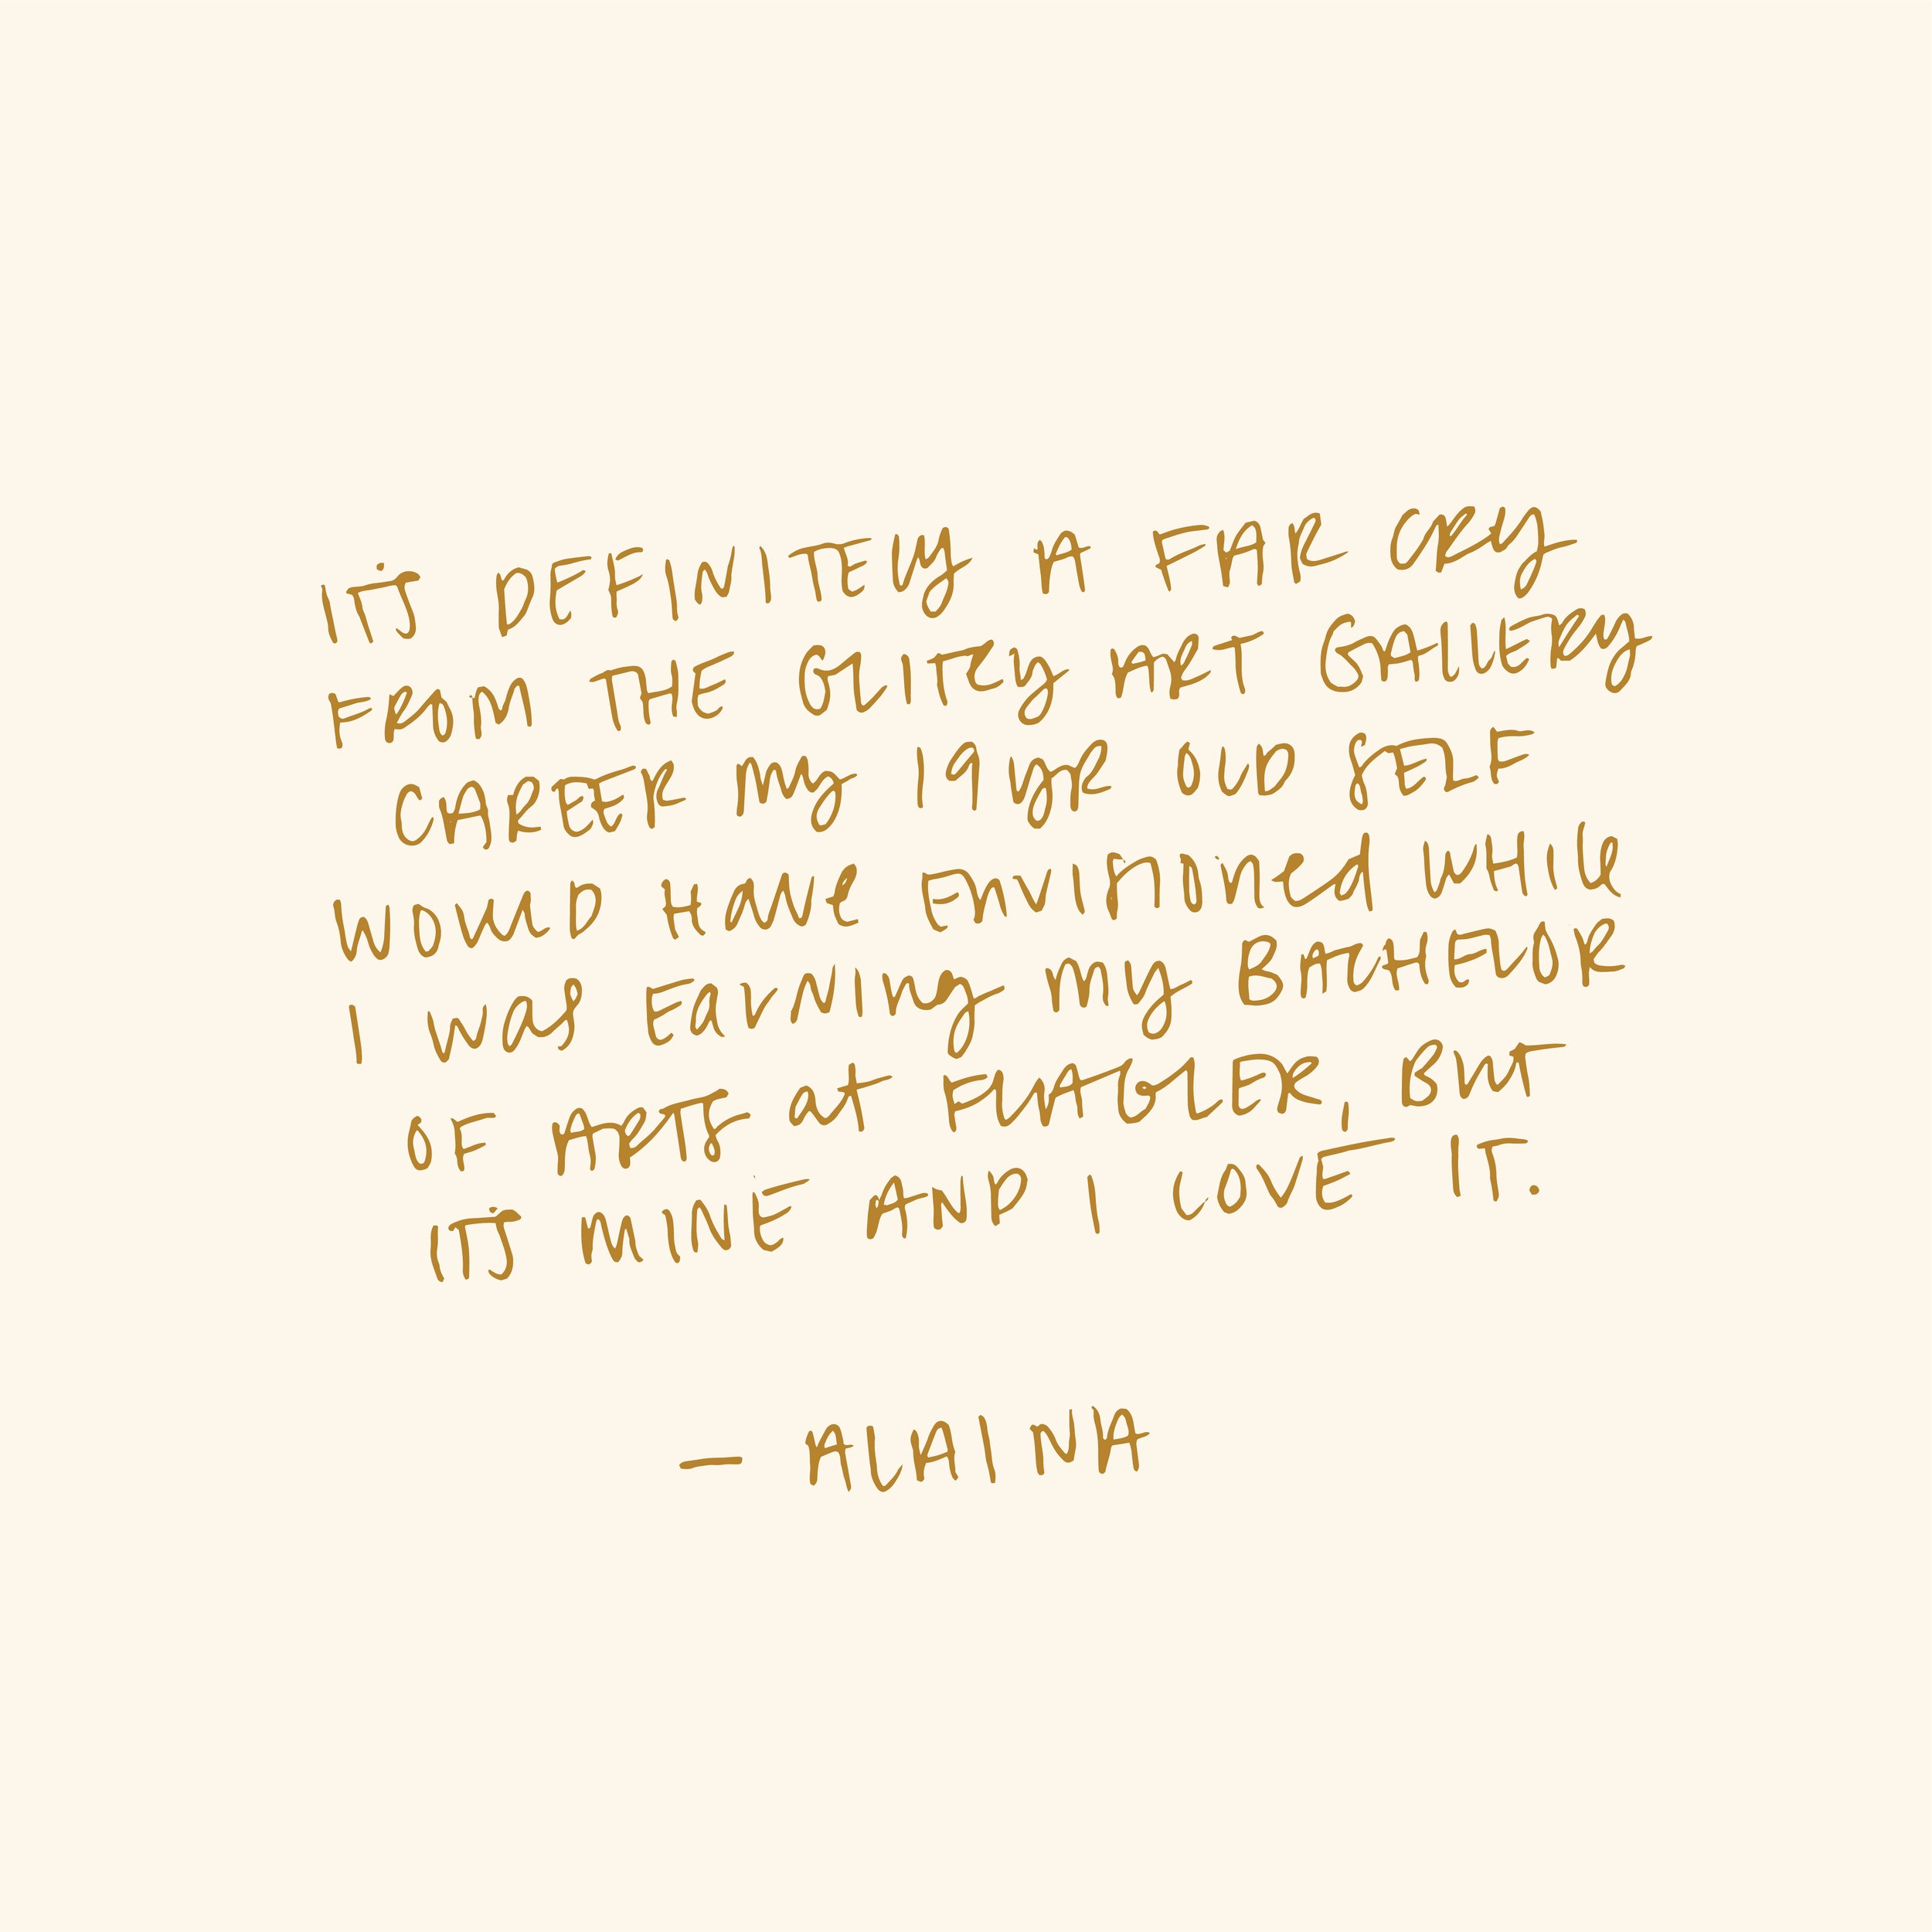 IT'S DEFINITELY A FAR CRY
FROM THE GLITZY ART GALLERY
CAREER MY 19 YR OLD SELF
WOULD HAVE ENVISIONED WHILE
I WAS EARNING MY BACHELOR
OF ARTS AT FLAGLER, BUT
IT'S MINE AND I LOVE IT.
— ALAINA